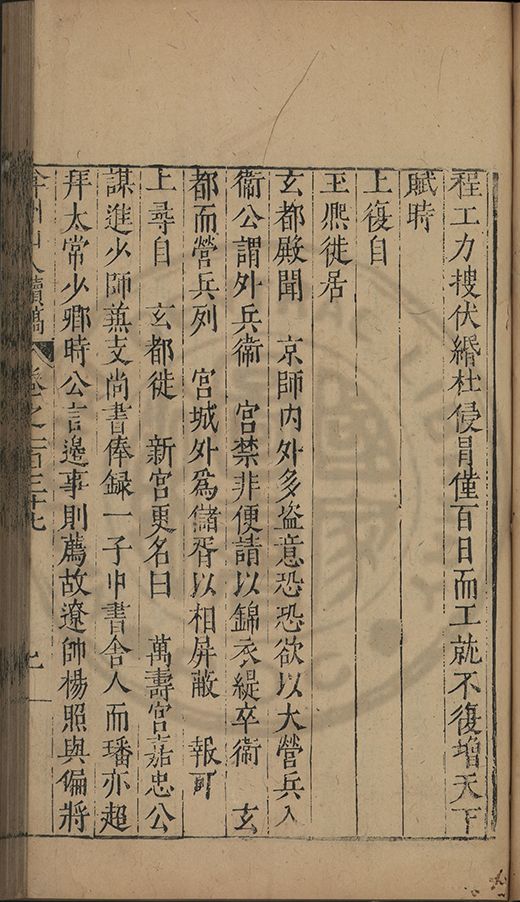 程工力搜伏緡杜侵冐僅百日而工就不復增天下
賦時
上復自
玉熈徙居
玄都殿聞　京師內外多盗意恐恐欲以大營兵入
衞公謂外兵衞　宮禁非便請以錦衣緹卒衞　玄
都而營兵列　宮城外爲儲胥以相屏蔽　報可
上尋自　玄都徙　新宮更名曰　萬壽宮嘉忠公
謀進少師兼支尚書俸録一子中書舍人而璠亦超
拜太常少卿時公言邊事則薦故遼帥楊照與偏將
弇州山人續稿　卷之一百三十七　七